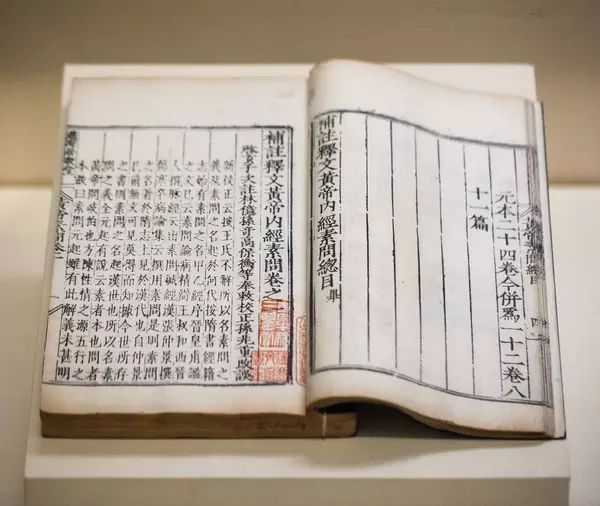 元本二十四卷今併為一十二卷八
十一篇
補註釋文黃帝內經素問總目 畢
補註釋文黃帝內經素問卷之一
啓玄子次註林億孫奇高保衡等奉敕校正孫兆重改誤
新校正云按王氏不解所以名素問之
義及素問之名起於何代按隋書經籍
志始有素問之名甲乙經序晉皇甫謐
之文已云素問論病精微王叔和西晉
人撰脉經云出素問鍼經漢張仲景撰
傷寒卒病論集云撰用素問是則素問
之名著於隋志上見於漢代也自仲景
已前無文可見莫得而知據今世所存
之書則素問之名起漢世也所以名素
問之義全元起有說云素者本也問者
黃帝問岐伯也方陳性情之源五行之
本故曰素問元起雖有此解義未甚明